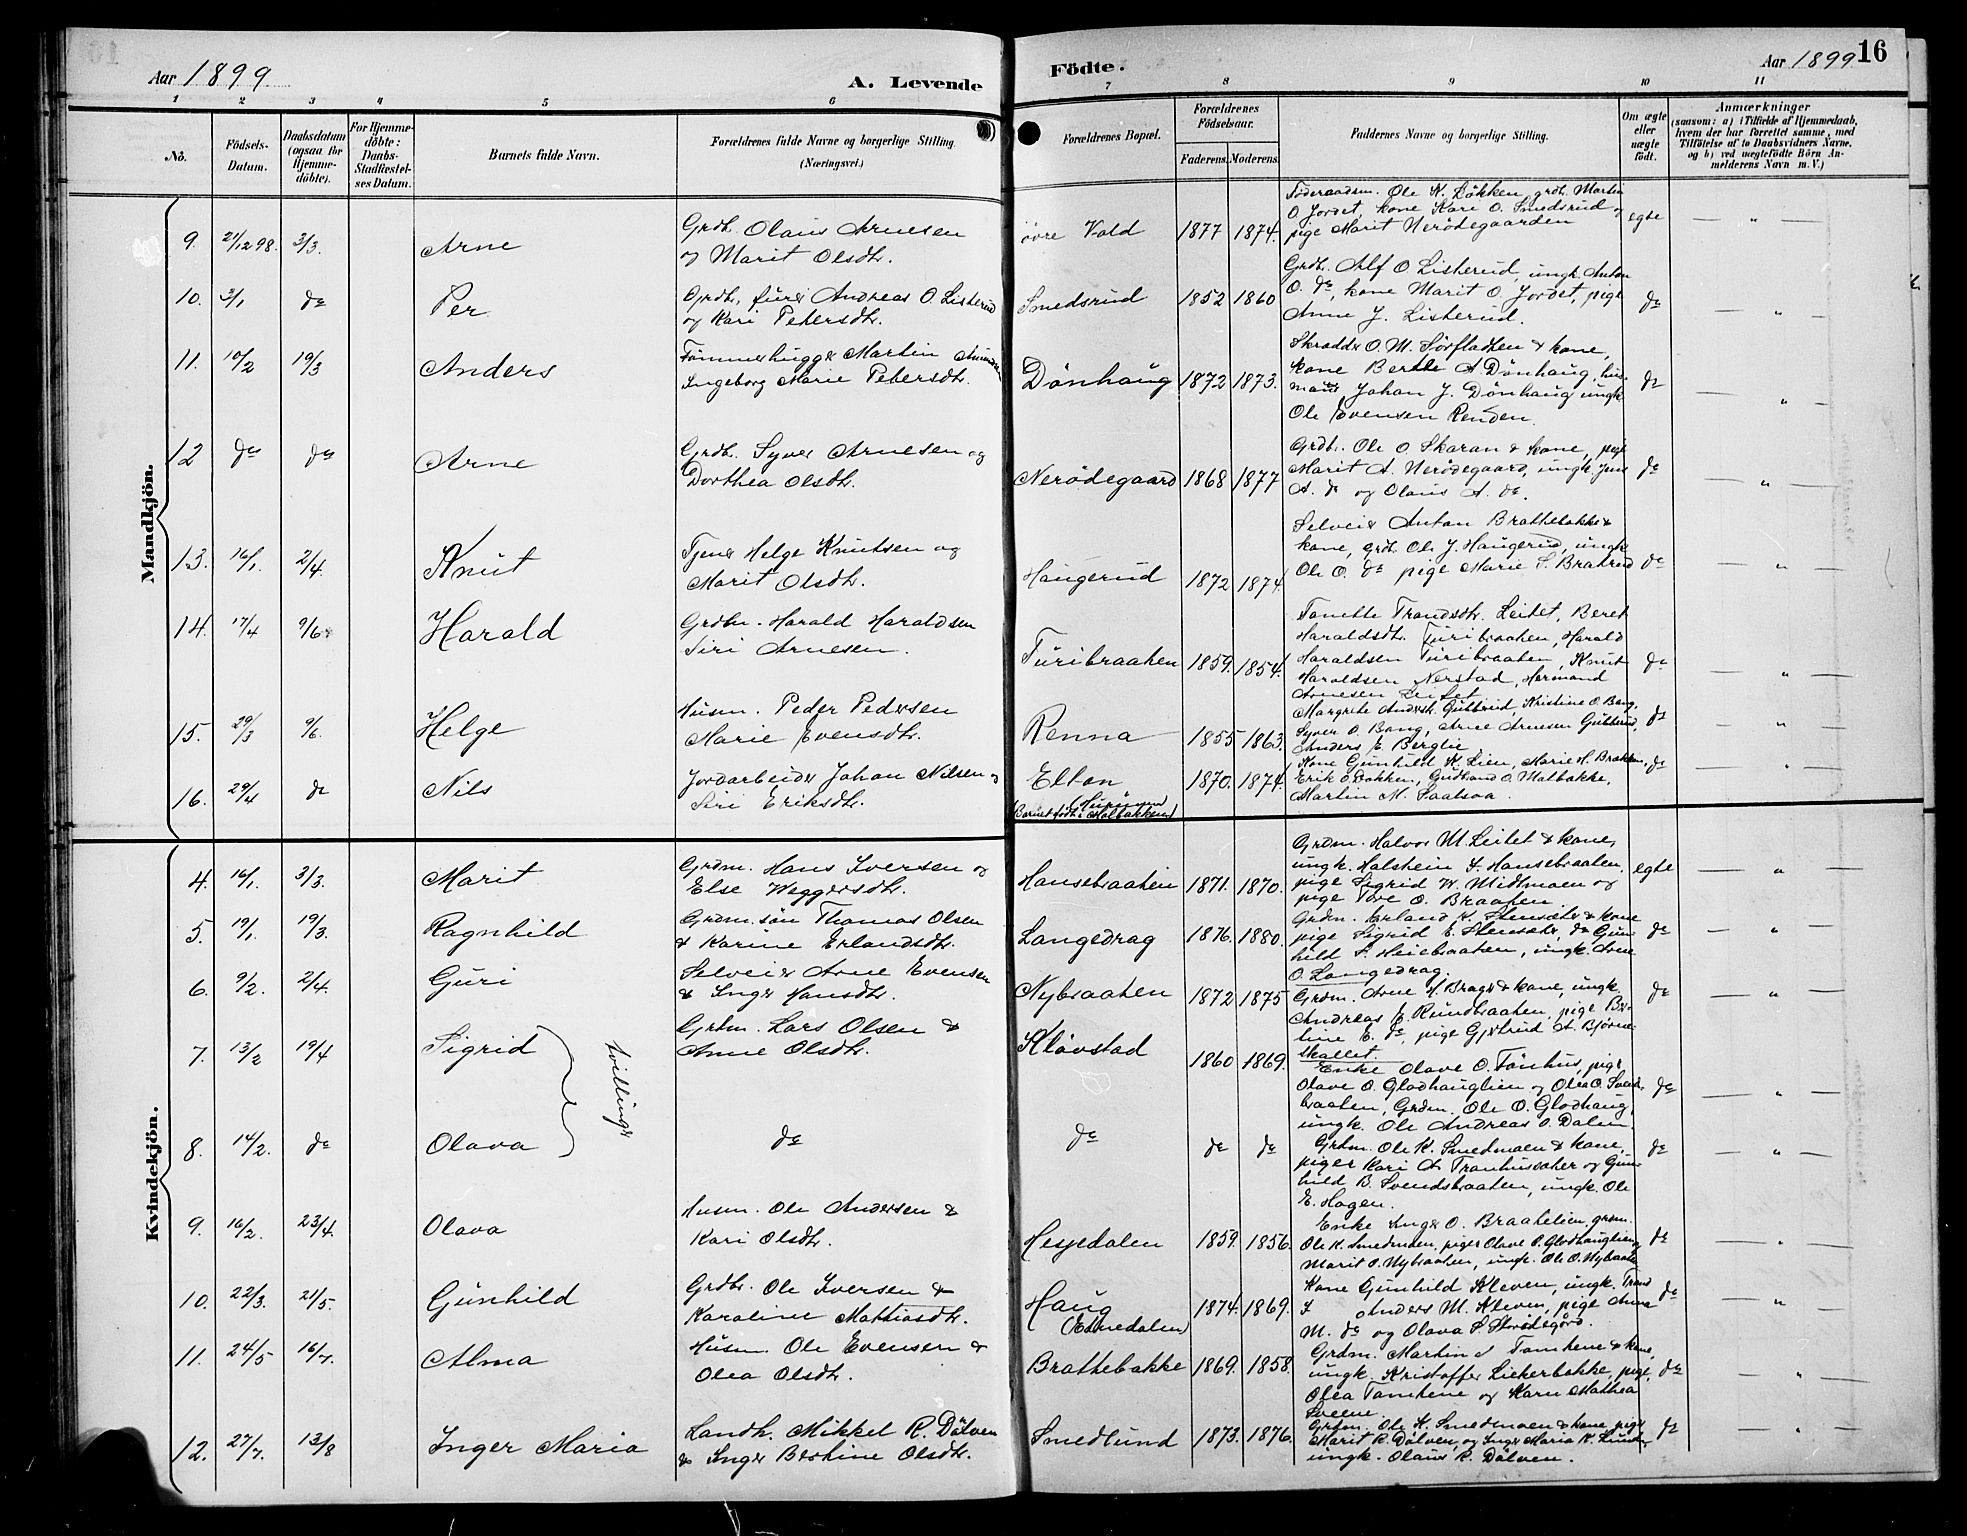 Aar 1899.
A. Levende
Födte.
Aar 1899
16
1 2 3 4 5 6 7 8 9 10 11
No.
Födsels-Datum.
Daabsdatum (ogsaa for Hjemmedöbte).
For Hjemmedöbte: Daabs-Stadfæstelses Datum.
Barnets fulde Navn.
Forældrenes fulde Navne og borgerlige Stilling. (Næringsvei.)
Forældrenes Bopæl.
Forældrenes Födselsaar.
Faderens. Moderens.
Faddernes Navne og borgerlige Stilling.
Om ægte eller uægte födt.
Anmærkninger
(saasom: a) i Tilfælde af Hjemmedaab, hvem der har forrettet samme, med Tilföielse af to Daabsvidners Navne, og b) ved uægtefödte Börn Anmelderens Navn m. V.)
Mandkjön.
9. 21/12 98. 3/3. Arne
Grdb. Olaus Arnesen
og Marit Olsdtr.
øvre Vold 1877 1874.
Föderaadsm. Ole K. Løkken, grdb. Martin
O. Jordet, kone Kari O. Smedsrud og
pige Marit Nerødegaarden
egte — " —
10. 3/1 do Per.
Grdb. Andreas O. Listerud
og Kari Petersdtr.
Smedsrud 1852 1860
Grdb. Alf O. Listerud, ungk. Anton
O. do, kone Marit O. Jordet, pige
Anne J. Listerud.
do — " —
11. 10/2 19/3 Anders
Tømmerhugger Martin
Ingeborg Marie Petersdtr.
Dønhaug 1872 1873.
Skrædder O. M. Sørfladten & kone,
kone Berthe A Dønhaug, hus-
mand Johan J. Dønhaug ungk.
Ole Evensen Renden.
do — " —
12 do do Arne
Grdb. Syver Arnesen og
Dorthea Olsdtr.
Nerødegaard 1868 1877
Grdb. Ole O Skaran & kone, pige
Marit A. Nerødegaard, ungk. Jens
A. do og Olaus A. do.
do — " —
13. 16/1. 2/4. Knut
Tjener Helge Knutsen og
Marit Olsdtr.
Haugerud 1872 1874.
Selveier Anton Brattebakke &
kone, grdb. Ole J. Haugerud, ungk.
Ole O. do pige Marie S. Bratrud
do — " —
14. 17/4 9/6 Harald
Grdbr. Harald Haraldsen
Siri Arnesen.
Turibraaten 1859. 1854.
Tonette Trondsdtr. Leitet, Beret
Haraldsdtr. Turibraaten, Harald
Haraldsen Turibraaten, Knut
Haraldsen Nerstad, Hermand
Arnesen Leitet
do — " —
15. 29/3 9/6. Helge
Husm. Peder Pedersen
Marie Evensdtr.
Renna 1855 1863.
Margrete Anders. Guttrud, Kristine O. Bang,
Syver O. Bang, Arne Arnesen Guttrud,
Anders E. Berglie
do — " —
16. 29/4 do Nils
Jordarbeider Johan Nilsen og
Siri Eriksdtr.
Elton 1870. 1874.
Kone Gunhild K. Lien, Marie H. Brakken,
Erik O Bakken, Gudbrand O Melbakke,
Martin M. Saalsaa.
do — " —
Kvindekjön.
4. 16/1. 3/3. Marit
Grdm. Hans Iversen og
Else Weggersdtr.
Hansebraaten 1871. 1870.
Grdm. Halvor M. Leitet & kone,
ungk. Halstein I. Hansebraaten,
pige Sigrid W. Midtmoen og
pige Tove O. Braaten
egte — " —
5. 19/1. 19/3. Ragnhild
Grdm. søn Thomas Olsen
& Karine Erlandsdtr.
Langedrag 1876. 1880.
Grdm. Erland K. Stensæter & kone
pige Sigrid E. Stensæter, do Gun-
hild S. Heiebraaten, ungk. Arne
O. Langedrag.
do — " —
6. 9/2. 2/4. Guri
Selveier Arne Evensen
& Inger Hansdtr.
Nybraaten 1872 1875
Grdm. Arne H. Brager & kone, ungk.
Andreas E. Rundbraaten, pige Ber-
line E. do, pige Gjertrud A. Bjørne-
skallet.
do — " —
7. 13/2 19/4 Sigrid
tvillinger
Grdm. Lars Olsen &
Anne Olsdtr.
Kløvstad 1860 1869.
Enke Olave O. Tønhus, pige
Olave O. Glodhauglien og Olea O. Svends-
braaten, Grdm. Ole O. Glodhaug,
ungk. Ole Andreas O. Dalen
do — " —
8. 14/2. do Olava
do
do do do
Grdm. Ole K. Smedmoen & kone,
piger Kari A Tranhussæter og Gun-
hild B. Svendsbraaten, ungk. Ole
E. Hagen.
do — " —
9. 16/2. 23/4. Olava
Husm. Ole Andersen &
Kari Olsdtr.
Hesjedalen 1859. 1856.
Enke Inger O. Braatelien, grdm.
Ole K. Smedmoen, piger Olave O. Glodhauglien og
Marit O. Nybraaten, ungk. Ole O. Nybraaten
do — " —
10. 22/3. 21/5. Gunhild
Grdbr. Ole Iversen &
Karoline Mathiasdtr.
Haug
(Etnedalen) 1874. 1869.
Kone Gunhild Kleven, ungk. Trond
I Anders M. Kleven, pige Anna
M. do og Olava S. Storødegård.
do — " —
11. 24/5 16/7. Alma
Husm. Ole Evensen &
Olea Olsdtr.
Brattebakke 1869. 1858.
Grdm. Martin Tomtene & kone,
ungk. Kristoffer Liekerbakke, pige,
Olea Tomtene og Karn Mathea
Sveene.
do — " —
12. 27/7. 13/8 Inger Maria
Landh. Mikkel R. Dølven
& Inger Bertine Olsdtr.
Smedlund 1873. 1876.
Grdm. Ole K. Smedmoen & kone, pige
Marit R. Dølven og Inger Maria K. Lunde,
ungk. Olaus R. Dølven.
do — " —